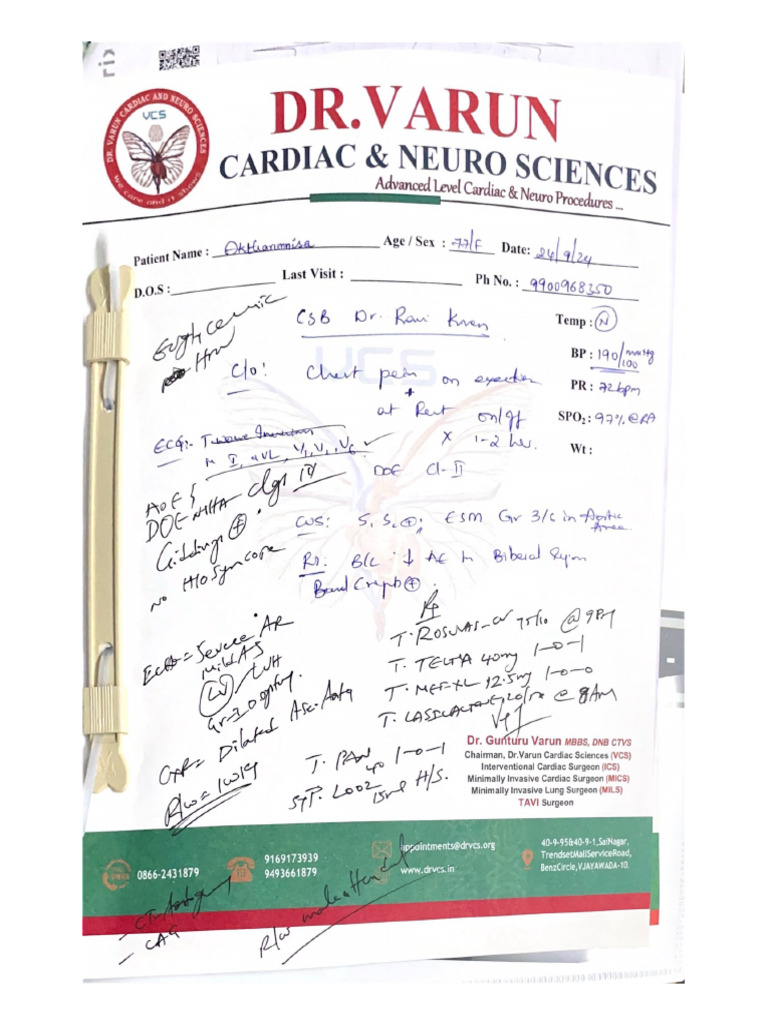 DR. VARUN CARDIAC AND NEURO SCIENCES
VCS
We care and it shows
DR.VARUN
CARDIAC & NEURO SCIENCES
Advanced Level Cardiac & Neuro Procedures ...
Patient Name : Akthannnisa Age / Sex : 77/F Date: 24/9/24
D.O.S : Last Visit : Ph No. : 9900968350
Euglycemic
HTN
CSB Dr. Ravi
Temp : N
BP : 190/100 mmHg
PR : 72 bpm
SPO2 : 97% @RA
Wt :
C/o : Chest pain on exertion
+
at Rest on/off
x 1-2 hrs.
ECG:- T-wave Inversion
in I, aVL, V
DOE Cl-II
AOE
DOE NYHA class IV
Giddings +
no H/o Syncope
CVS: S1S2 +; ESM Gr 3/6 in Aortic Area
RS: B/L ↓ AE in
Basal Crepts +
Echo = Severe AR
Mild AS
LV LVH
CXR = Dilated Asc. Aorta
R/w = 1 wk
Rx
T. ROSUVAS-CV 75/10 @ 9PM
T. TELMA 40mg 1-0-1
T. MET-XL 12.5mg 1-0-0
T. LASILACTONE 20/50 @ 8AM
T. PAN 40 1-0-1
SYP. LOOZ 15ml H/S.
Dr. Gunturu Varun MBBS, DNB CTVS
Chairman, Dr.Varun Cardiac Sciences (VCS)
Interventional Cardiac Surgeon (ICS)
Minimally Invasive Cardiac Surgeon (MICS)
Minimally Invasive Lung Surgeon (MILS)
TAVI Surgeon
0866-2431879
9169173939
9493661879
appointments@drvcs.org
www.drvcs.in
40-9-95&40-9-1,SaiNagar,
TrendsetMallServiceRoad,
BenzCircle,VIJAYAWADA-10.
- CT-Aortogram
- CAG
R/w male attender